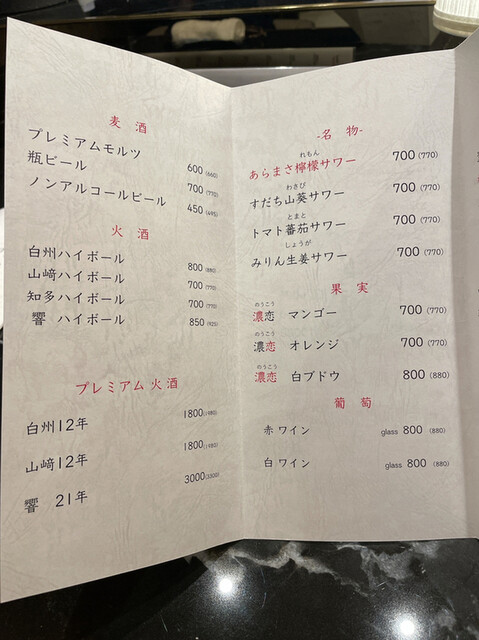 麦 酒
プレミアムモルツ 600 (660)
瓶ビール 700 (770)
ノンアルコールビール 450 (495)
火 酒
白州ハイボール 800 (880)
山﨑ハイボール 700 (770)
知多ハイボール 700 (770)
響 ハイボール 850 (925)
プレミアム火酒
白州12年 1800 (1980)
山﨑12年 1800 (1980)
響 21年 3000 (3300)
-名 物-
れもん
あらまさ檸檬サワー 700 (770)
わさび
すだち山葵サワー 700 (770)
とまと
トマト蕃茄サワー 700 (770)
しょうが
みりん生姜サワー 700 (770)
果 実
のうこう
濃恋 マンゴー 700 (770)
のうこう
濃恋 オレンジ 700 (770)
のうこう
濃恋 白ブドウ 800 (880)
葡 萄
赤ワイン glass 800 (880)
白ワイン glass 800 (880)